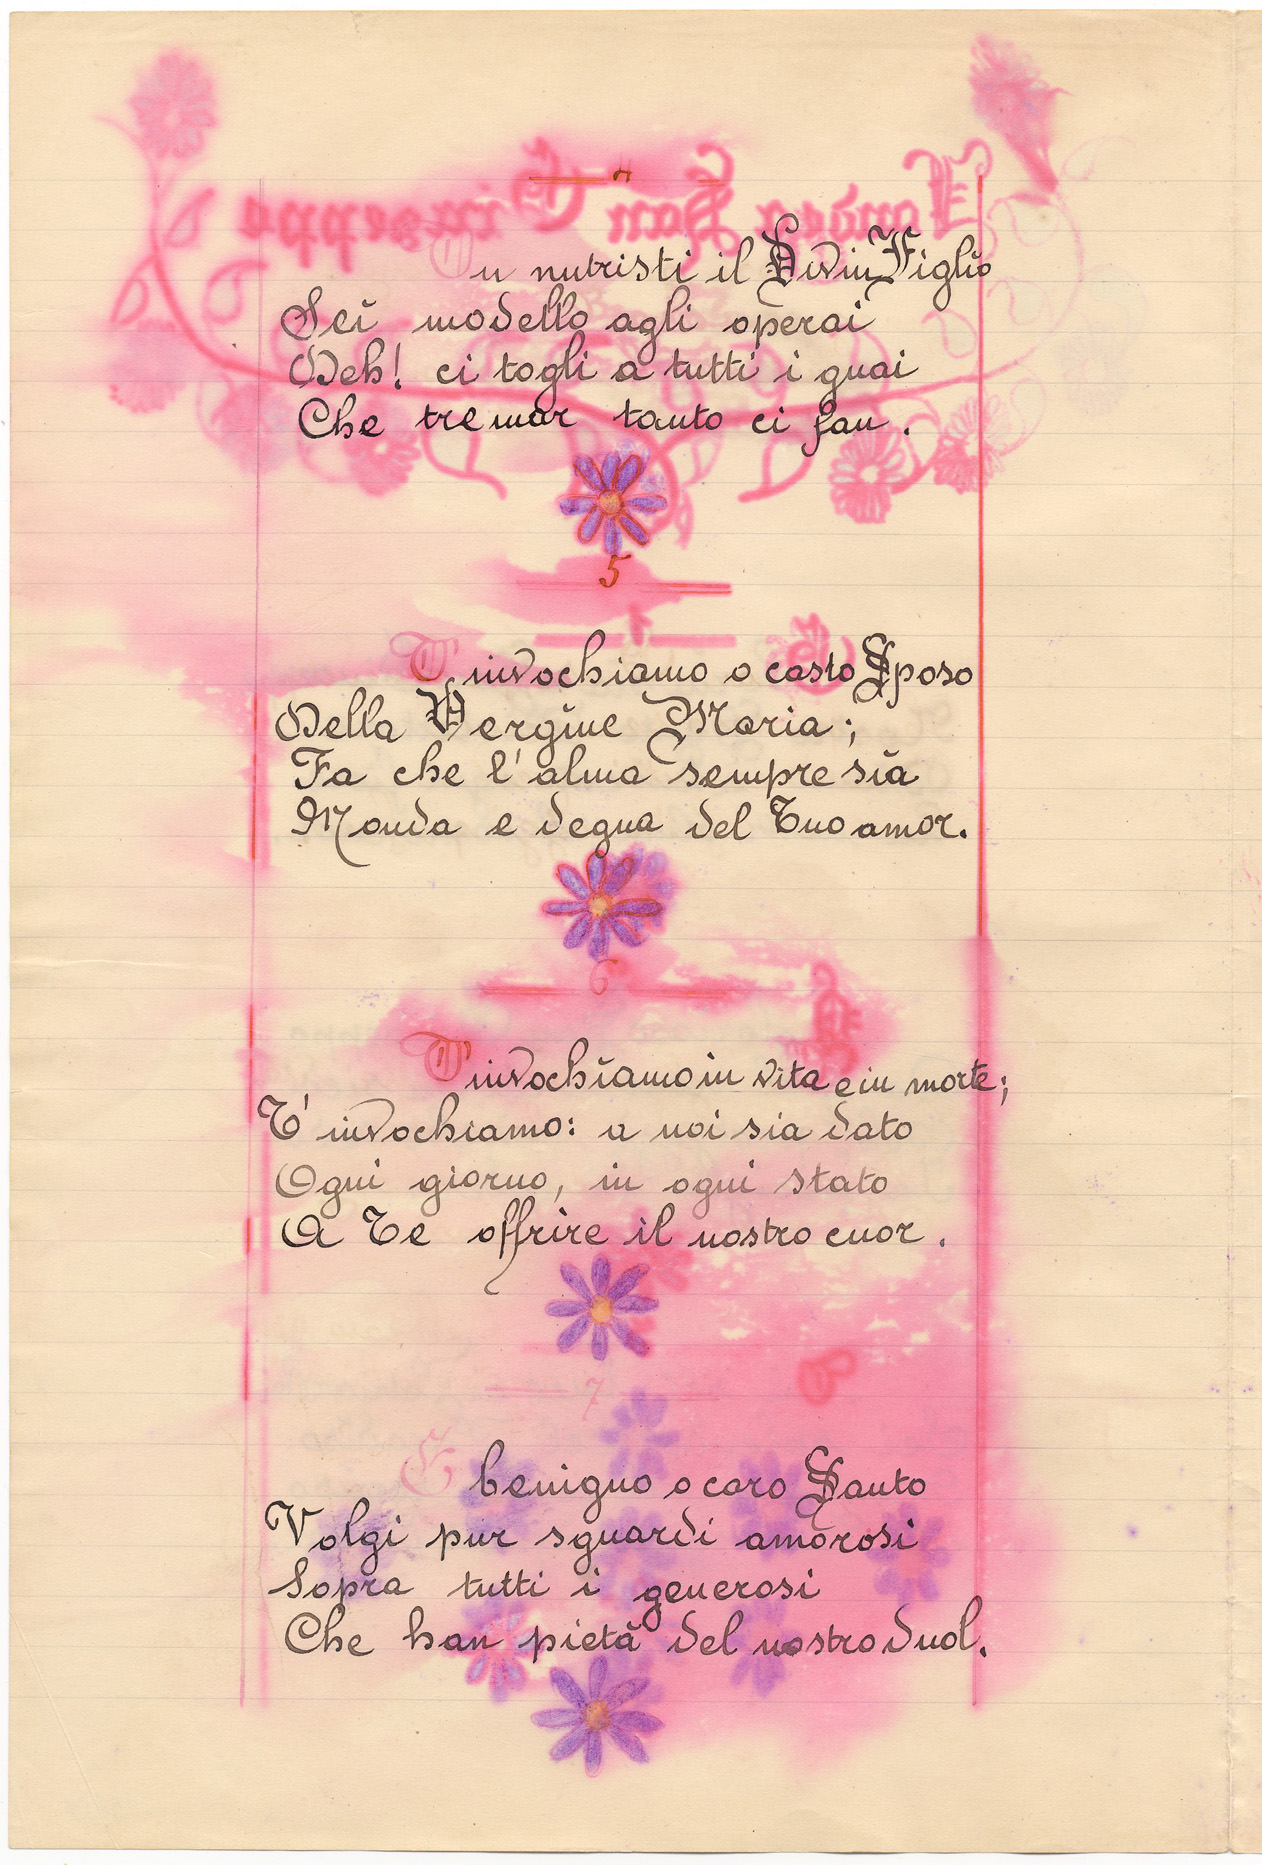 4
Tu nutristi il Divin Figlio
Sei modello agli operai
Deh! ci togli a tutti i guai
Che tremar tanto ci fan.
5
T'invochiamo o casto Sposo
Della Vergine Maria;
Fa che l'alma sempre sia
Monda e degna del Tuo amor.
6
T'invochiamo in vita e in morte;
T'invochiamo: a noi sia dato
Ogni giorno, in ogni stato
A Te offrire il nostro cuor.
7
E benigno o caro Santo
Volgi pur sguardi amorosi
Sopra tutti i generosi
Che han pietà del nostro duol.